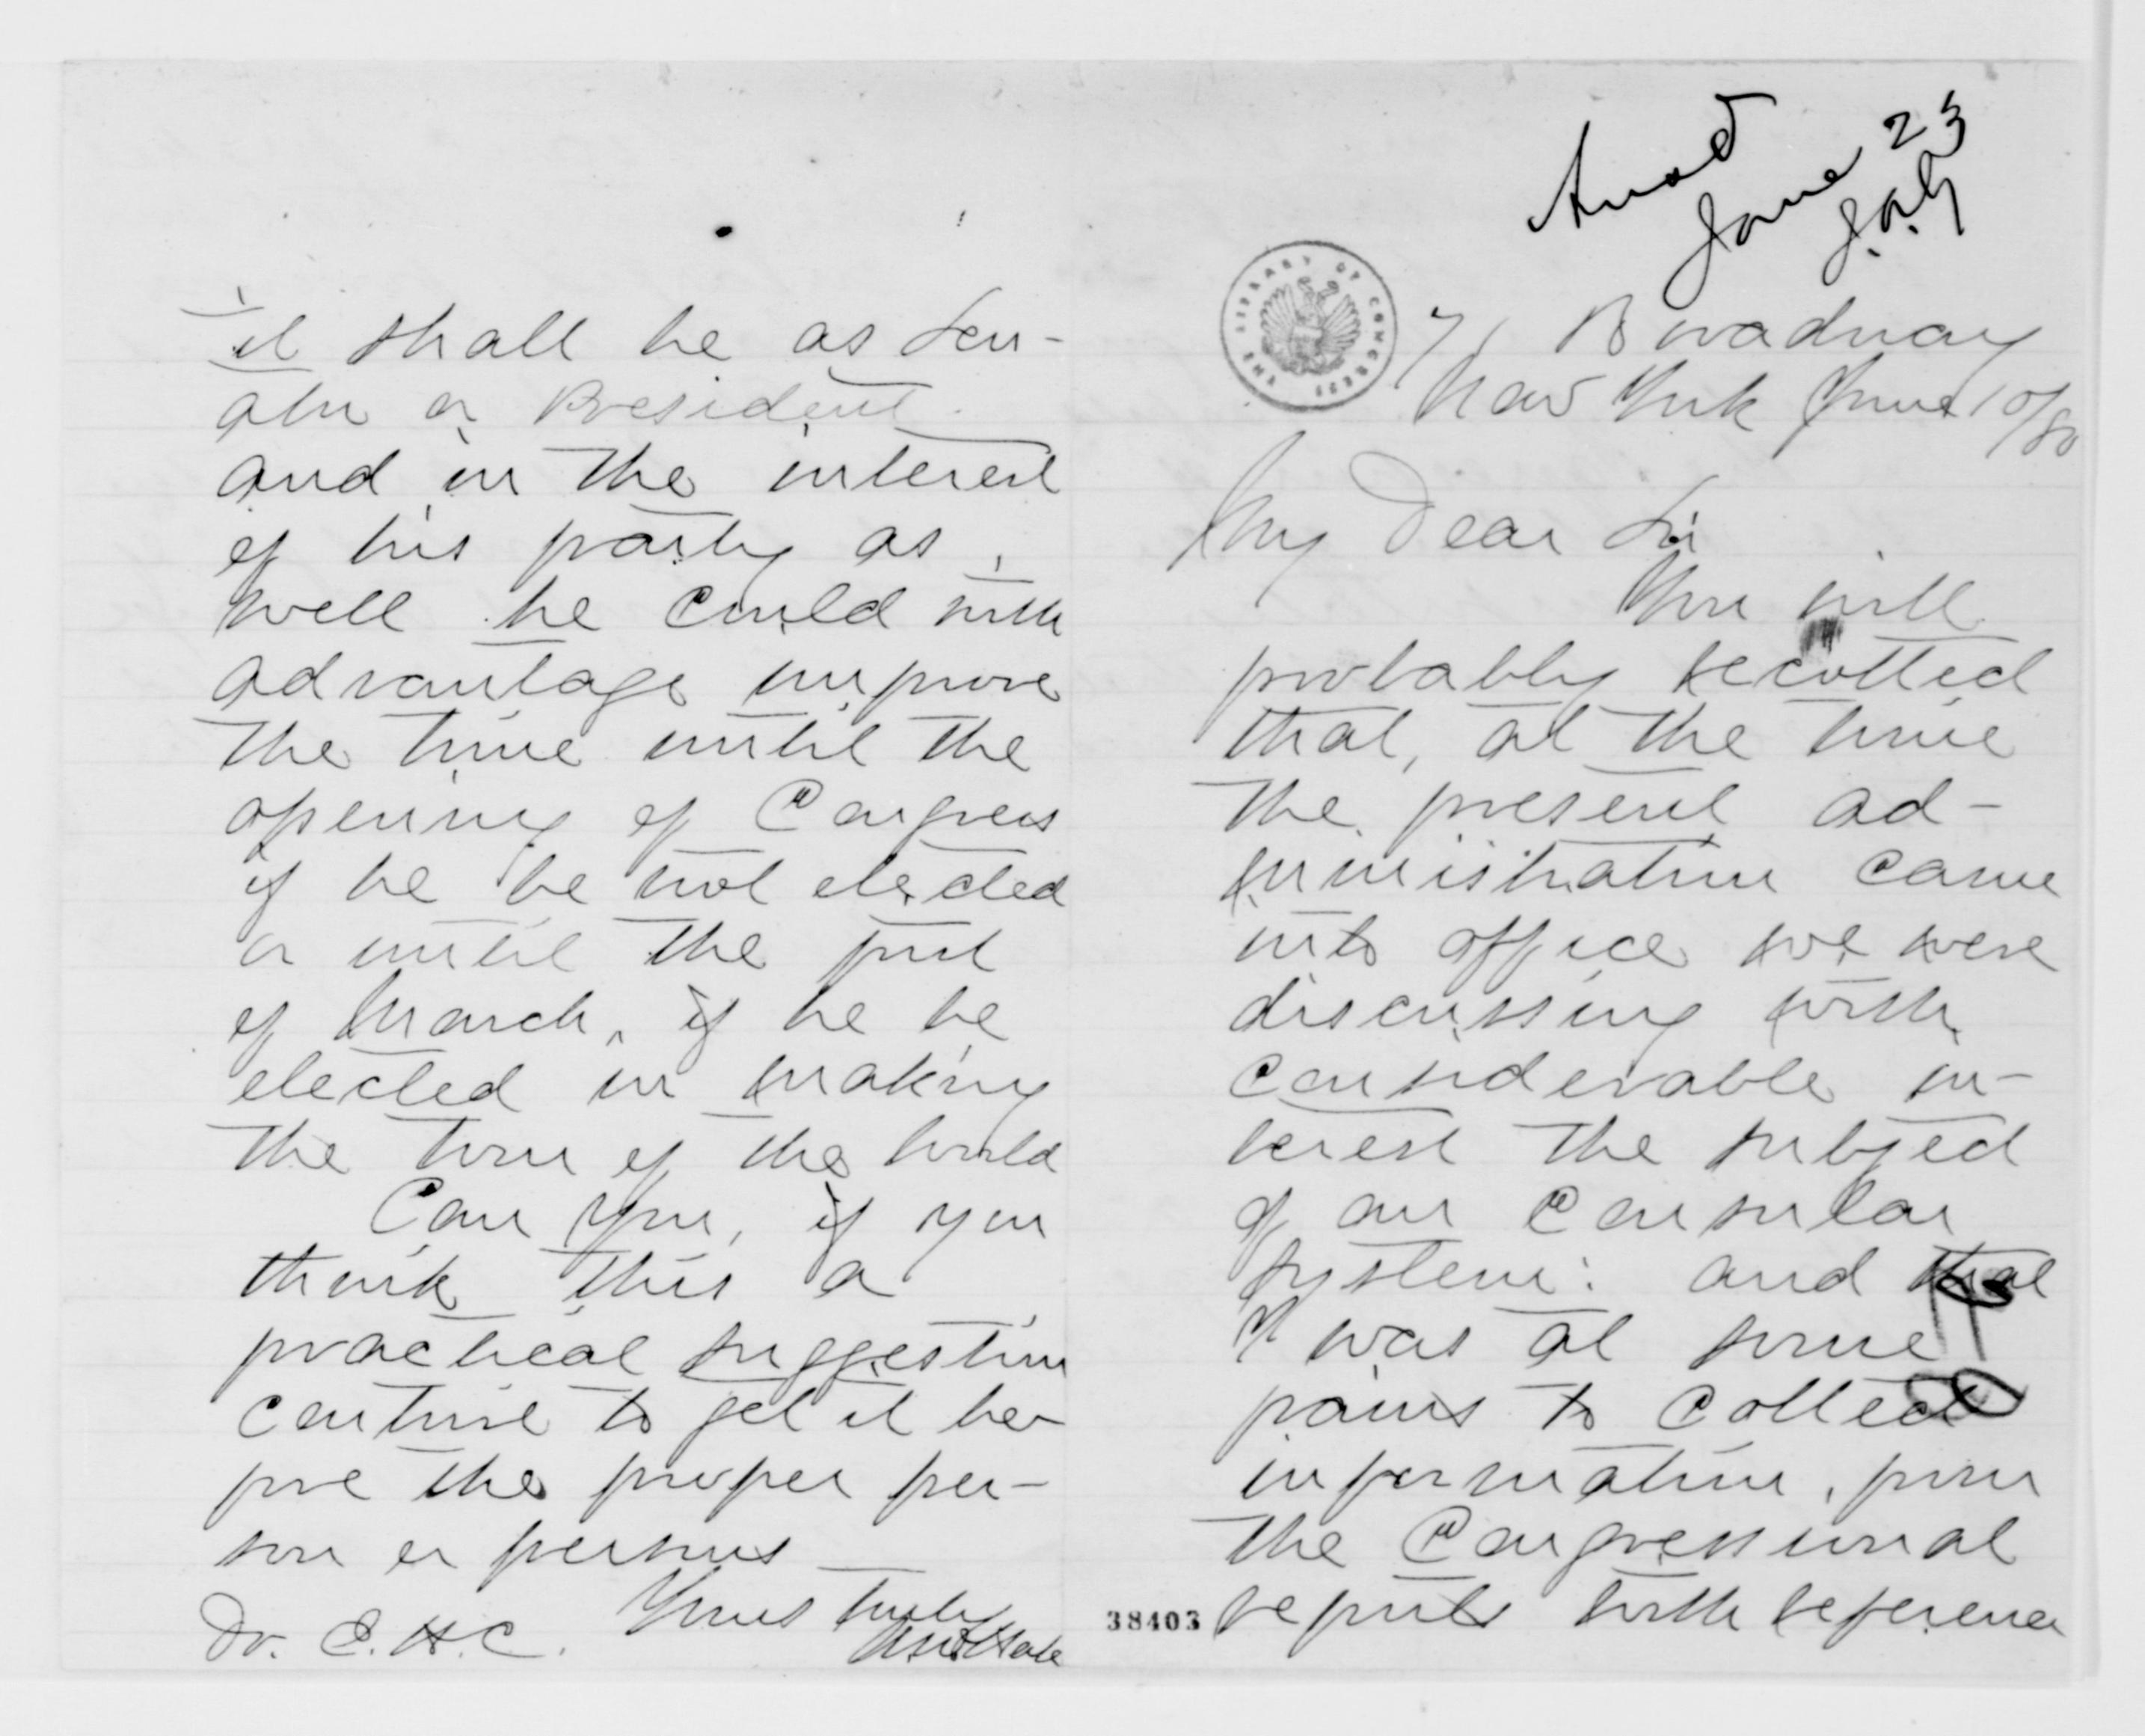 Answd
June 23
J.A.G.
THE LIBRARY OF CONGRESS
71 Broadway
New York June 10/80
My Dear Sir
You will
probably recollect
that, at the time
the present ad-
ministration came
into office we were
discussing with
considerable in-
terest the subject
of our Consular
system: and that
I was at some
pains to collect
information, from
the Congressional
reports with reference
38403
it shall be as Sen-
ator or President.
and in the interest
of his party as
well he could with
advantage improve
the time until the
opening of Congress
if he be not elected
or until the first
of March, if he be
elected in making
the tour of the world
Can you, if you
think this a
practical suggestion
contrive to get it be-
fore the proper per-
son or persons
Yours truly
Dr. C. H. C.